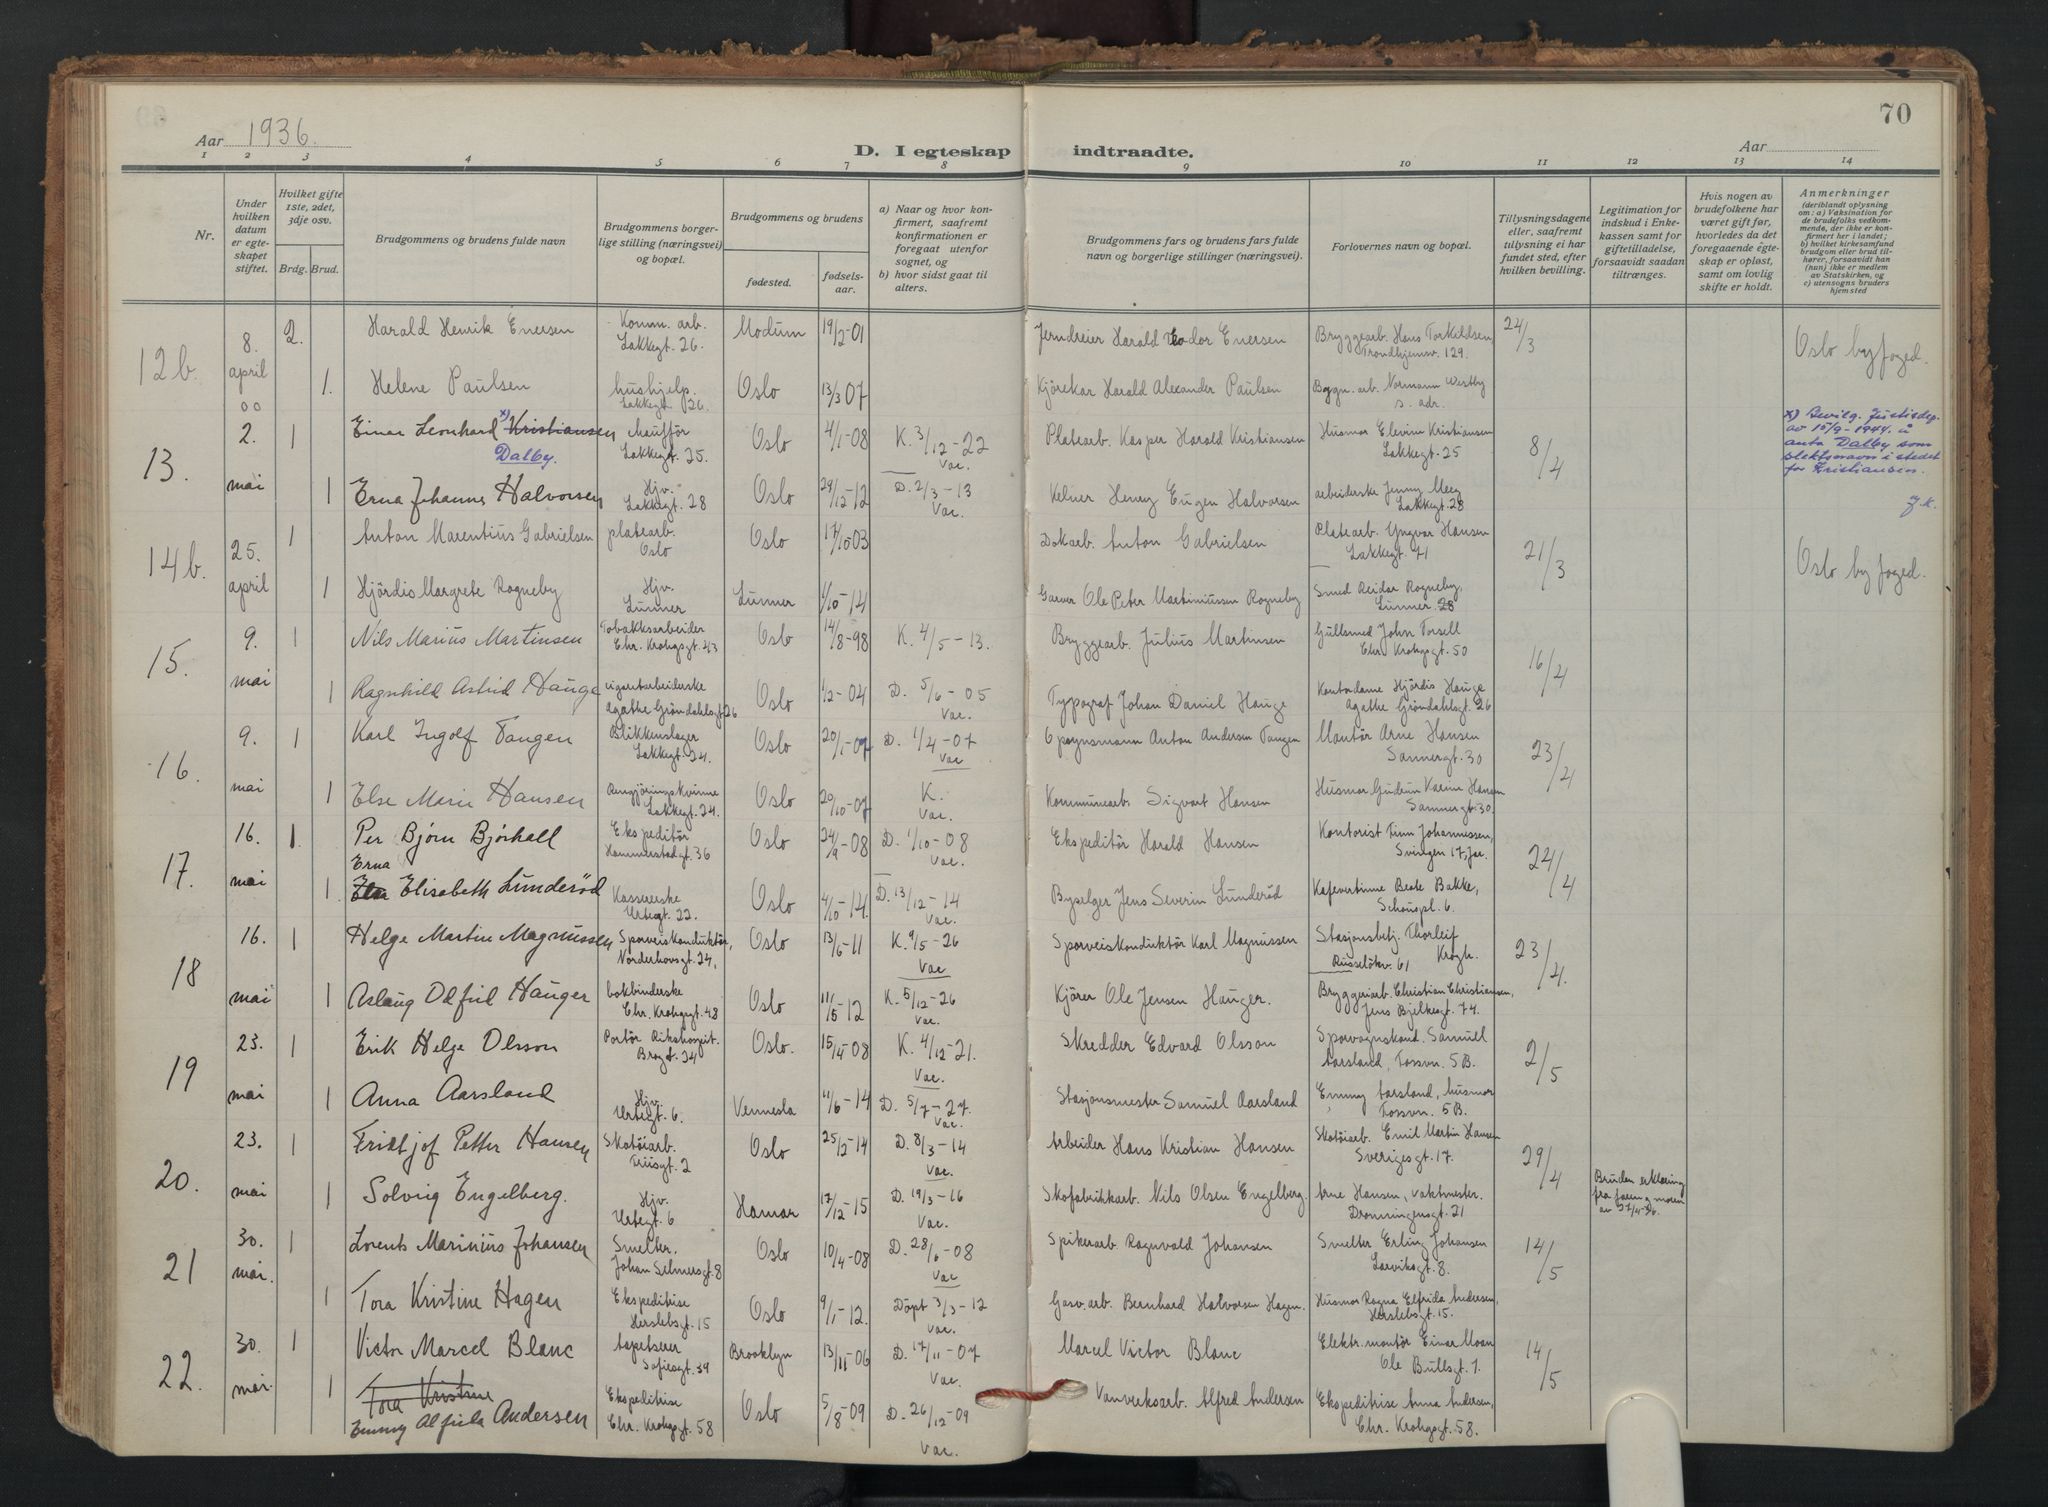 70
Aar 1936.
Aar
D. I egteskap indtraadte.
1 2 3 4 5 6 7 8 9 10 11 12 13 14
Nr.
Under hvilken datum er egteskapet stiftet.
Hvilket gifte 1ste, 2det, 3dje osv.
Brdg. Brud.
Brudgommens og brudens fulde navn
Brudgommens borgerlige stilling (næringsvei) og bopæl.
Brudgommens og brudens
fødested. fødselsaar.
a) Naar og hvor konfirmert, saafremt konfirmationen er foregaat utenfor sognet, og
b) hvor sidst gaat til alters.
Brudgommens fars og brudens fars fulde navn og borgerlige stillinger (næringsvei).
Forlovernes navn og bopæl.
Tillysningsdagene eller, saafremt tillysning ei har fundet sted, efter hvilken bevilling.
Legitimation for indskud i Enkekassen samt for giftetilladelse, forsaavidt saadan tiltrænges.
Hvis nogen av brudefolkene har været gift før, hvorledes da det foregaaende egteskap er opløst, samt om lovlig skifte er holdt.
Anmerkninger
(deriblandt oplysning om: a) Vaksination for de brudefolks vedkommende, der ikke er konfirmert her i landet; b) hvilket kirkesamfund brudgom eller brud tilhører, forsaavidt han (hun) ikke er medlem av Statskirken, og c) utensogns bruders hjemsted
12b. 8. april 2. Harald Henrik Enersen Komm. arb. Lakkegt. 26. Modum 19/2-01 Jerndreier Harald Teodor Enersen Bryggearb. Hans Torkildsen Trondhjemsv. 129. 24/3 Oslo byfoged.
1. Helene Paulsen hushjelp. Lakkegt. 26. Oslo 13/3 07 Kjörekar Harald Alexander Paulsen Bygn. arb. Normann Westby s. adr.
13. 2. mai 1 Einar Leonhard x) Kristiansen Dalby. Lakkegt. 25. Oslo 4/1-08 K. 3/12-22 Vac. Platearb. Kasper Harald Kristiansen Husmor Elevine Kristiansen Lakkegt. 25 8/4 x) Bevilg. Justisdep. av 15/9-1944 å anta Dalby som slektsnavn i stedet for Kristiansen.
1 Erna Johanne Halvorsen Hjv. Lakkegt. 28 Oslo 29/12-12 D. 2/3-13 Vac. Kelner Henry Eugen Halvorsen arbeiderske Jenny Meeg Lakkegt. 28
14b. 25. april 1 Anton Marentius Gabrielsen platearb. Oslo Oslo 17/10 03 Dokarb. Anton Gabrielsen Platearb. Yngvar Hansen Lakkegt. 41 21/3 Oslo byfoged.
1 Hjördis Margrete Rogneby Hjv. Lunner Lunner 1/10-14 Garver Ole Peter Martiniussen Rogneby Smed Reidar Rogneby. Lunner. 28
15. 9. mai 1 Nils Marius Martinsen Tobakksarbeider Chr. Krohgsgt. 43 Oslo 14/8-98 K. 4/5-13. Bryggearb. Julius Martinsen Gullsmed John Torsell Chr. Krohgsgt. 50 16/4
1 Ragnhild Astrid Hauge cigaretarbeiderske Agathe Gröndahlsgt. 26 Oslo 1/2-04 D. 5/6-05 Vac. Typograf Johan Daniel Hauge Kontordame Hjördis Hauge Agathe Gröndahlsgt. 26
16. 9. mai 1 Karl Ingolf Tangen Blikkenslager Lakkegt. 24. Oslo 20/1-07 D. 1/4-07 Vac Anton Andersen Tangen Montör Arne Hansen Sannergt. 30 23/4
1 Else Marie Hansen Rengjöringskvinne Lakkegt. 24. Oslo 20/10-07 K. Vac. Kommunearb. Sigvart Hansen Husmor Gudrun Karine Hansen Sannergt. 30.
17. 16. mai 1. Per Björn Björhall Ekspeditör Hammerstadgt. 36 Oslo 24/9-08 D. 1/10-08 Vac. Ekspeditör Harald Hansen Kontorist Finn Johannessen, Svingen 17, Jar. 24/4
1. Erna Elisabeth Lunderöd Kassererske Urtegt. 22. Oslo 4/10-14. D. 13/12-14 Vac. Byselger Jens Severin Lunderöd Kafevertinne Beate Bakke, Schouspl. 6.
18 16. mai 1 Helge Martin Magnussen Sporveiskonduktör, Norderhovsgt. 24, Oslo 13/6-11 K. 9/5-26 Vac Sporveiskonduktör Karl Magnussen Stasjonsbetj. Thorleif Krogh. Russeløkv. 61 23/4.
1 Aslaug Odfrid Hauger bokbinderske Chr. Krohgsgt. 48 Oslo 11/5-12 K. 5/12-26 Vac. Kjörer Ole Jensen Hauger. Bryggeriarb. Christian Christiansen, Jens Bjelkesgt. 74.
19 23. mai 1 Erik Helge Olsson Portör Rikshospit. Brogt. 34 Oslo. 15/4-08 K. 4/12-21. Vac. Skredder Edvard Olsson Sporvognskond. Samuel Aarsland, Fossvn. 5B. 2/5
1 Anna Aarsland Hjv. Urtegt. 6. Vennesla 11/6-14 D. 5/7-27. Vac. Stasjonsmester Samuel Aarsland Emmy Aarsland, husmor Fossvn. 5B.
20. 23. mai 1 Fridtjof Petter Hansen Skotöiarb. Friisgt. 2 Oslo 25/2-14 D. 8/3-14 Vac. Arbeider Hans Kristian Hansen Skotöiarb. Emil Martin Hansen Sverigesgt. 17. 29/4
1 Solveig Engelberg. Hjv. Urtegt. 6 Hamar 17/12-15 D. 19/3-16 Vac. Skofabrikkarb. Nils Olsen Engelberg. Arne Hansen, vaktmester. Dronningensgt. 21 Bruden erklæring fra faren og moren
21 30. mai. 1 Lorents Marinius Johansen Smelter. Johan Selmersgt. 8 Oslo 10/4-08 D. 28/6-08 Vac Spikerarb Ragnvald Johansen Smelter Erling Johansen Larviksgt. 8. 14/5
1 Tora Kristine Hagen Ekspeditrise Herslebsgt. 15 Oslo 9/1-12. Döpt 3/3-12 Vac. Gasv. arb. Bernhard Halvorsen Hagen. Husmor Ragna Elfrida Andersen, Herslebsgt. 15.
22. 30. mai. 1 Victor Marcel Blanc tapetserer Sofiesgt. 39 Brooklyn 13/11-06 D. 17/11-07 Vac. Marcel Victor Blanc Elektr. montör Einar Moan Ole Bullsgt. 1. 14/5
1 Tora Kristine Emmy Alfrida Andersen Ekspeditrise Chr. Krohgsgt. 58 Oslo 5/8-09 D. 26/12-09 Vac. Vanverksarb. Alfred Andersen Ekspeditrise Anna Andersen, Chr. Krohgsgt. 58.